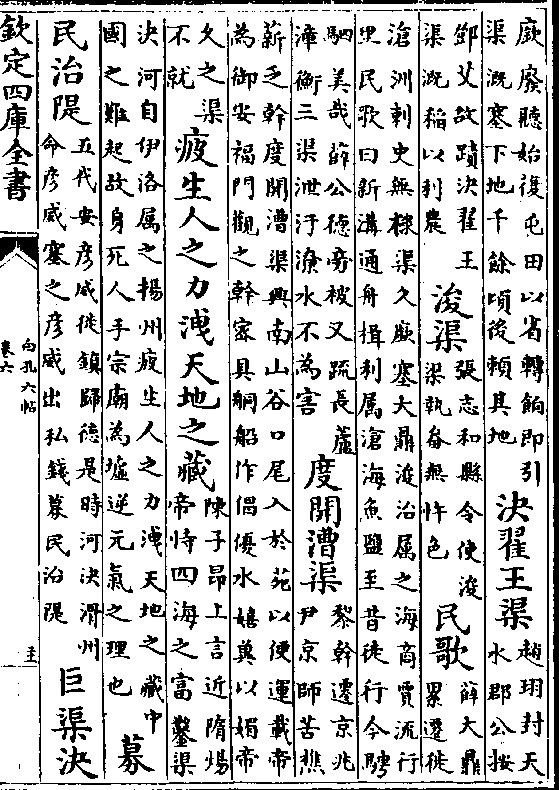 廞廢聽始復屯田以省轉餉即引
渠溉塞下地千餘頃後頼其地
決翟王渠
趙珝封天
水郡公按
鄧艾故蹟決翟王
渠溉稲以利農
浚渠
張志和縣令使浚
渠執畚無忤色
民歌
薛大鼎
累遷徙
滄洲刺史無棣渠久廞塞大鼎浚治属之海商賈流行
里民歌曰新溝通舟楫利属滄海魚鹽至昔徒行今騁
駟美哉薛公德滂被又疏長蘆
漳衡三渠泄汙潦水不為害
度開漕渠
黎幹遷京兆
尹京師苦樵
薪乏幹度開漕渠興南山谷口尾入於苑以便運載帝
為御安福門觀之幹密具舸船作倡優水嬉冀以媚帝
久之渠
不就
疲生人之力洩天地之藏
陳子昂上言近隋煬
帝恃四海之富鑿渠
決河自伊洛属之揚州疲生人之力洩天地之藏中
國之難起故身死人手宗廟為墟逆元氣之理也
募
民治隄
五代安彦威徙鎮歸德是時河決滑州
命彦威塞之彦威出私錢募民治隄
巨渠決
欽定四庫全書
白孔六帖
卷六